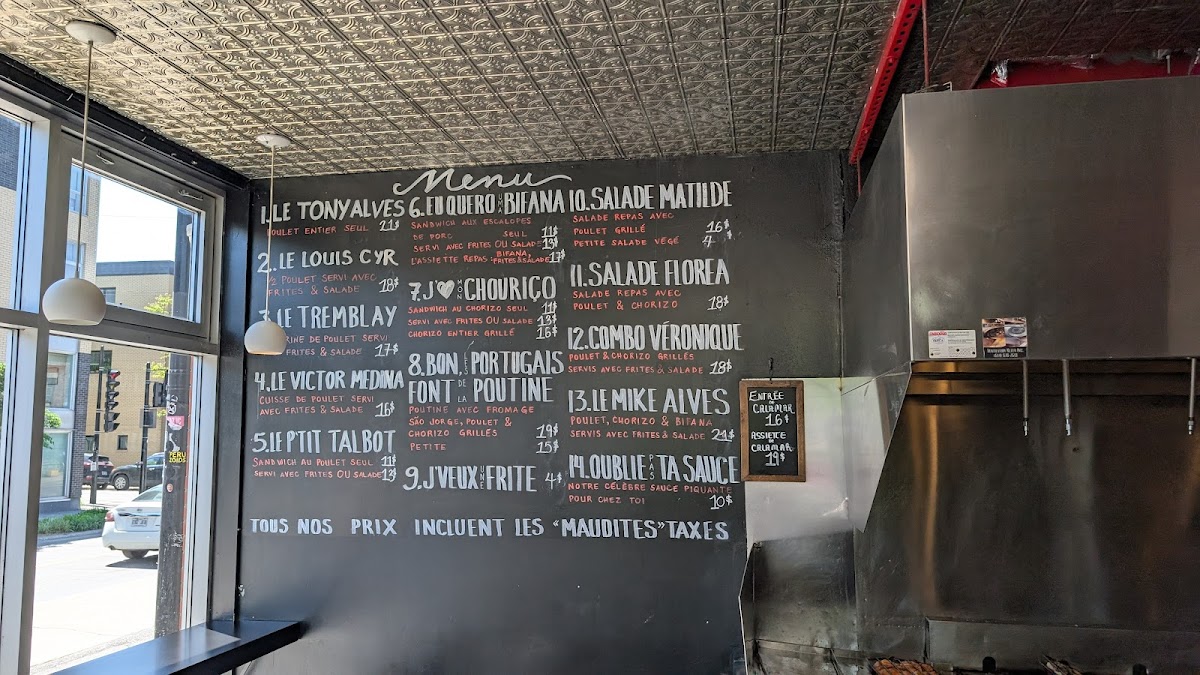 Menu
1. LE TONY ALVES
POULET ENTIER SEUL 21$
2. LE LOUIS CYR
1/2 POULET SERVI AVEC
FRITES & SALADE 18$
3. LE TREMBLAY
POITRINE DE POULET SERVI
AVEC FRITES & SALADE 17$
4. LE VICTOR MEDINA
CUISSE DE POULET SERVI
AVEC FRITES & SALADE 16$
5. LE P'TIT TALBOT
SANDWICH AU POULET SEUL 11$
SERVI AVEC FRITES OU SALADE 13$
6. EU QUERO UMA BIFANA
SANDWICH AUX ESCALOPES
DE PORC SEUL 11$
SERVI AVEC FRITES OU SALADE 13$
L'ASSIETTE REPAS: BIFANA, FRITES & SALADE 17$
7. J'♥ MON CHOURIÇO
SANDWICH AU CHORIZO SEUL 11$
SERVI AVEC FRITES OU SALADE 13$
CHORIZO ENTIER GRILLÉ 16$
8. BON, LES PORTUGAIS
FONT DE LA POUTINE
POUTINE AVEC FROMAGE
SÃO JORGE, POULET &
CHORIZO GRILLÉS 19$
PETITE 15$
9. J'VEUX UNE FRITE 4$
10. SALADE MATILDE
SALADE REPAS AVEC
POULET GRILLÉ 16$
PETITE SALADE VÉGÉ 4$
11. SALADE FLOREA
SALADE REPAS AVEC
POULET & CHORIZO 18$
12. COMBO VÉRONIQUE
POULET & CHORIZO GRILLÉS
SERVIS AVEC FRITES & SALADE 18$
13. LE MIKE ALVES
POULET, CHORIZO & BIFANA
SERVIS AVEC FRITES & SALADE 21$
14. OUBLIE PAS TA SAUCE
NOTRE CÉLÈBRE SAUCE PIQUANTE
POUR CHEZ TOI 10$
TOUS NOS PRIX INCLUENT LES "MAUDITES" TAXES
ENTRÉE
DE
CALAMAR
16$
ASSIETTE
DE
CALAMAR
19$